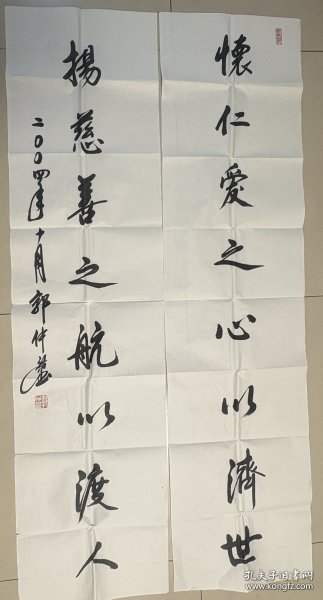 懷仁愛之心以濟世
揚慈善之航以渡人
二〇〇四年十月郭仲
孔夫子旧书网
www.kongfz.com